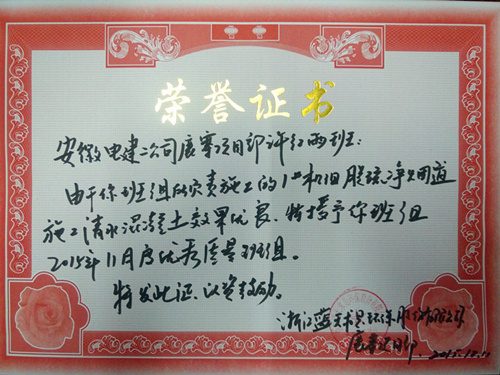 荣誉证书
安徽电建二公司展寨项目部许红两班:
由于你班组所负责施工的1#机组脱硫净烟道
施工清水混凝土效果优良,特授予你班组
2015年11月度优秀质量班组。
特发此证,以资鼓励。
浙江蓝天求是环保股份有限公司
项目部 2015.12.11